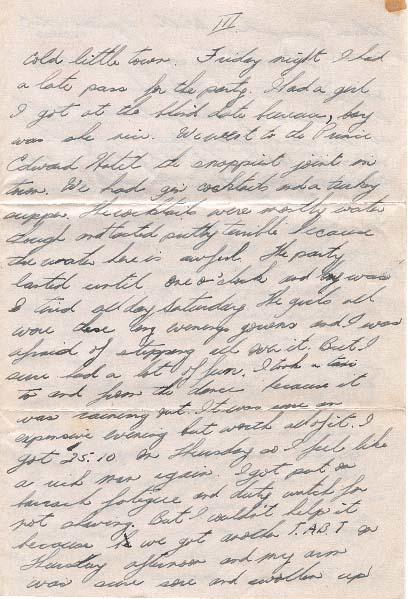 III.
cold little town. Friday night I had
a late pass for the party. Had a girl
I got at the blind date bureau, boy
was she nice. We went to the Prince
Edward Hotel the snappiest joint in
town. We had gin cocktails and a turkey
supper. The cocktails were mostly water
though and tasted pretty terrible because
the water here is awful. The party
lasted until one o'clock and my was
I tired all day Saturday. The girls all
wore these long evening gowns and I was
afraid of stepping all over it. But I
sure had a lot of fun. I took a taxi
to and from the dance because it
was raining out. It was sure an
expensive evening but worth all of it. I
got 25.10 on Thursday so I feel like
a rich man again. I got put on
barrack fatigue and duty watch for
not shaving. But I couldn't help it
because we got another T.A.B.T on
Thursday afternoon and my arm
was sure sore and swollen up